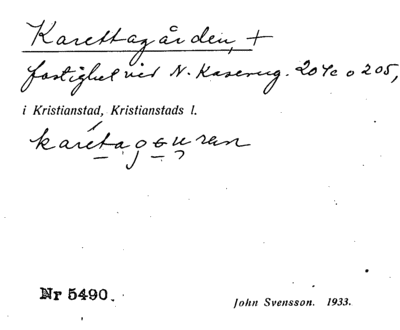 Karettagården, +
fastighet vid N. Kaserng. 204c o 205,
i Kristianstad, Kristianstads l.
Nr 5490.
John Svensson. 1933.